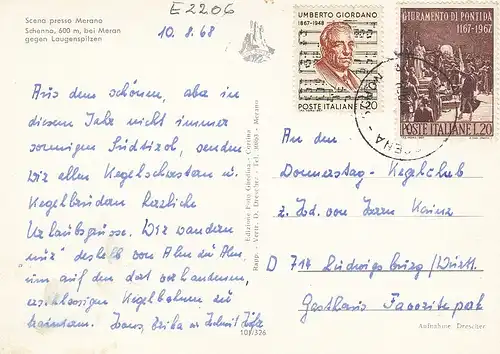 E2206
Scena presso Merano
Schenna, 600 m, bei Meran
gegen Laugenspitzen
10. 8. 68
UMBERTO GIORDANO
1867-1948
POSTE ITALIANE L.20
GIURAMENTO DI PONTIDA
1167-1967
POSTE ITALIANE L.20
Aus dem schönen, aber in
diesem Jahr nicht immer
sonnigen Südtirol, senden
wir allen Kegelschwestern u.
Kegelbrüdern herzliche
Urlaubsgrüsse. Wir wandern
"nur" deshalb von Alm zu Alm,
um auf den dort vorhandenen,
erstklassigen Kegelbahnen zu
trainieren. Hans, Erika u. Helmut
Edizione Foto Ghedina - Cortina
Rapp. - Vertr. D. Drescher - Tel. - Merano
101/326
An den
Donnerstag-Kegelclub
z. Hd. von Herrn Kainz
D 714 Ludwigsburg/Württ.
Gasthaus Favoritepark
Aufnahme Drescher